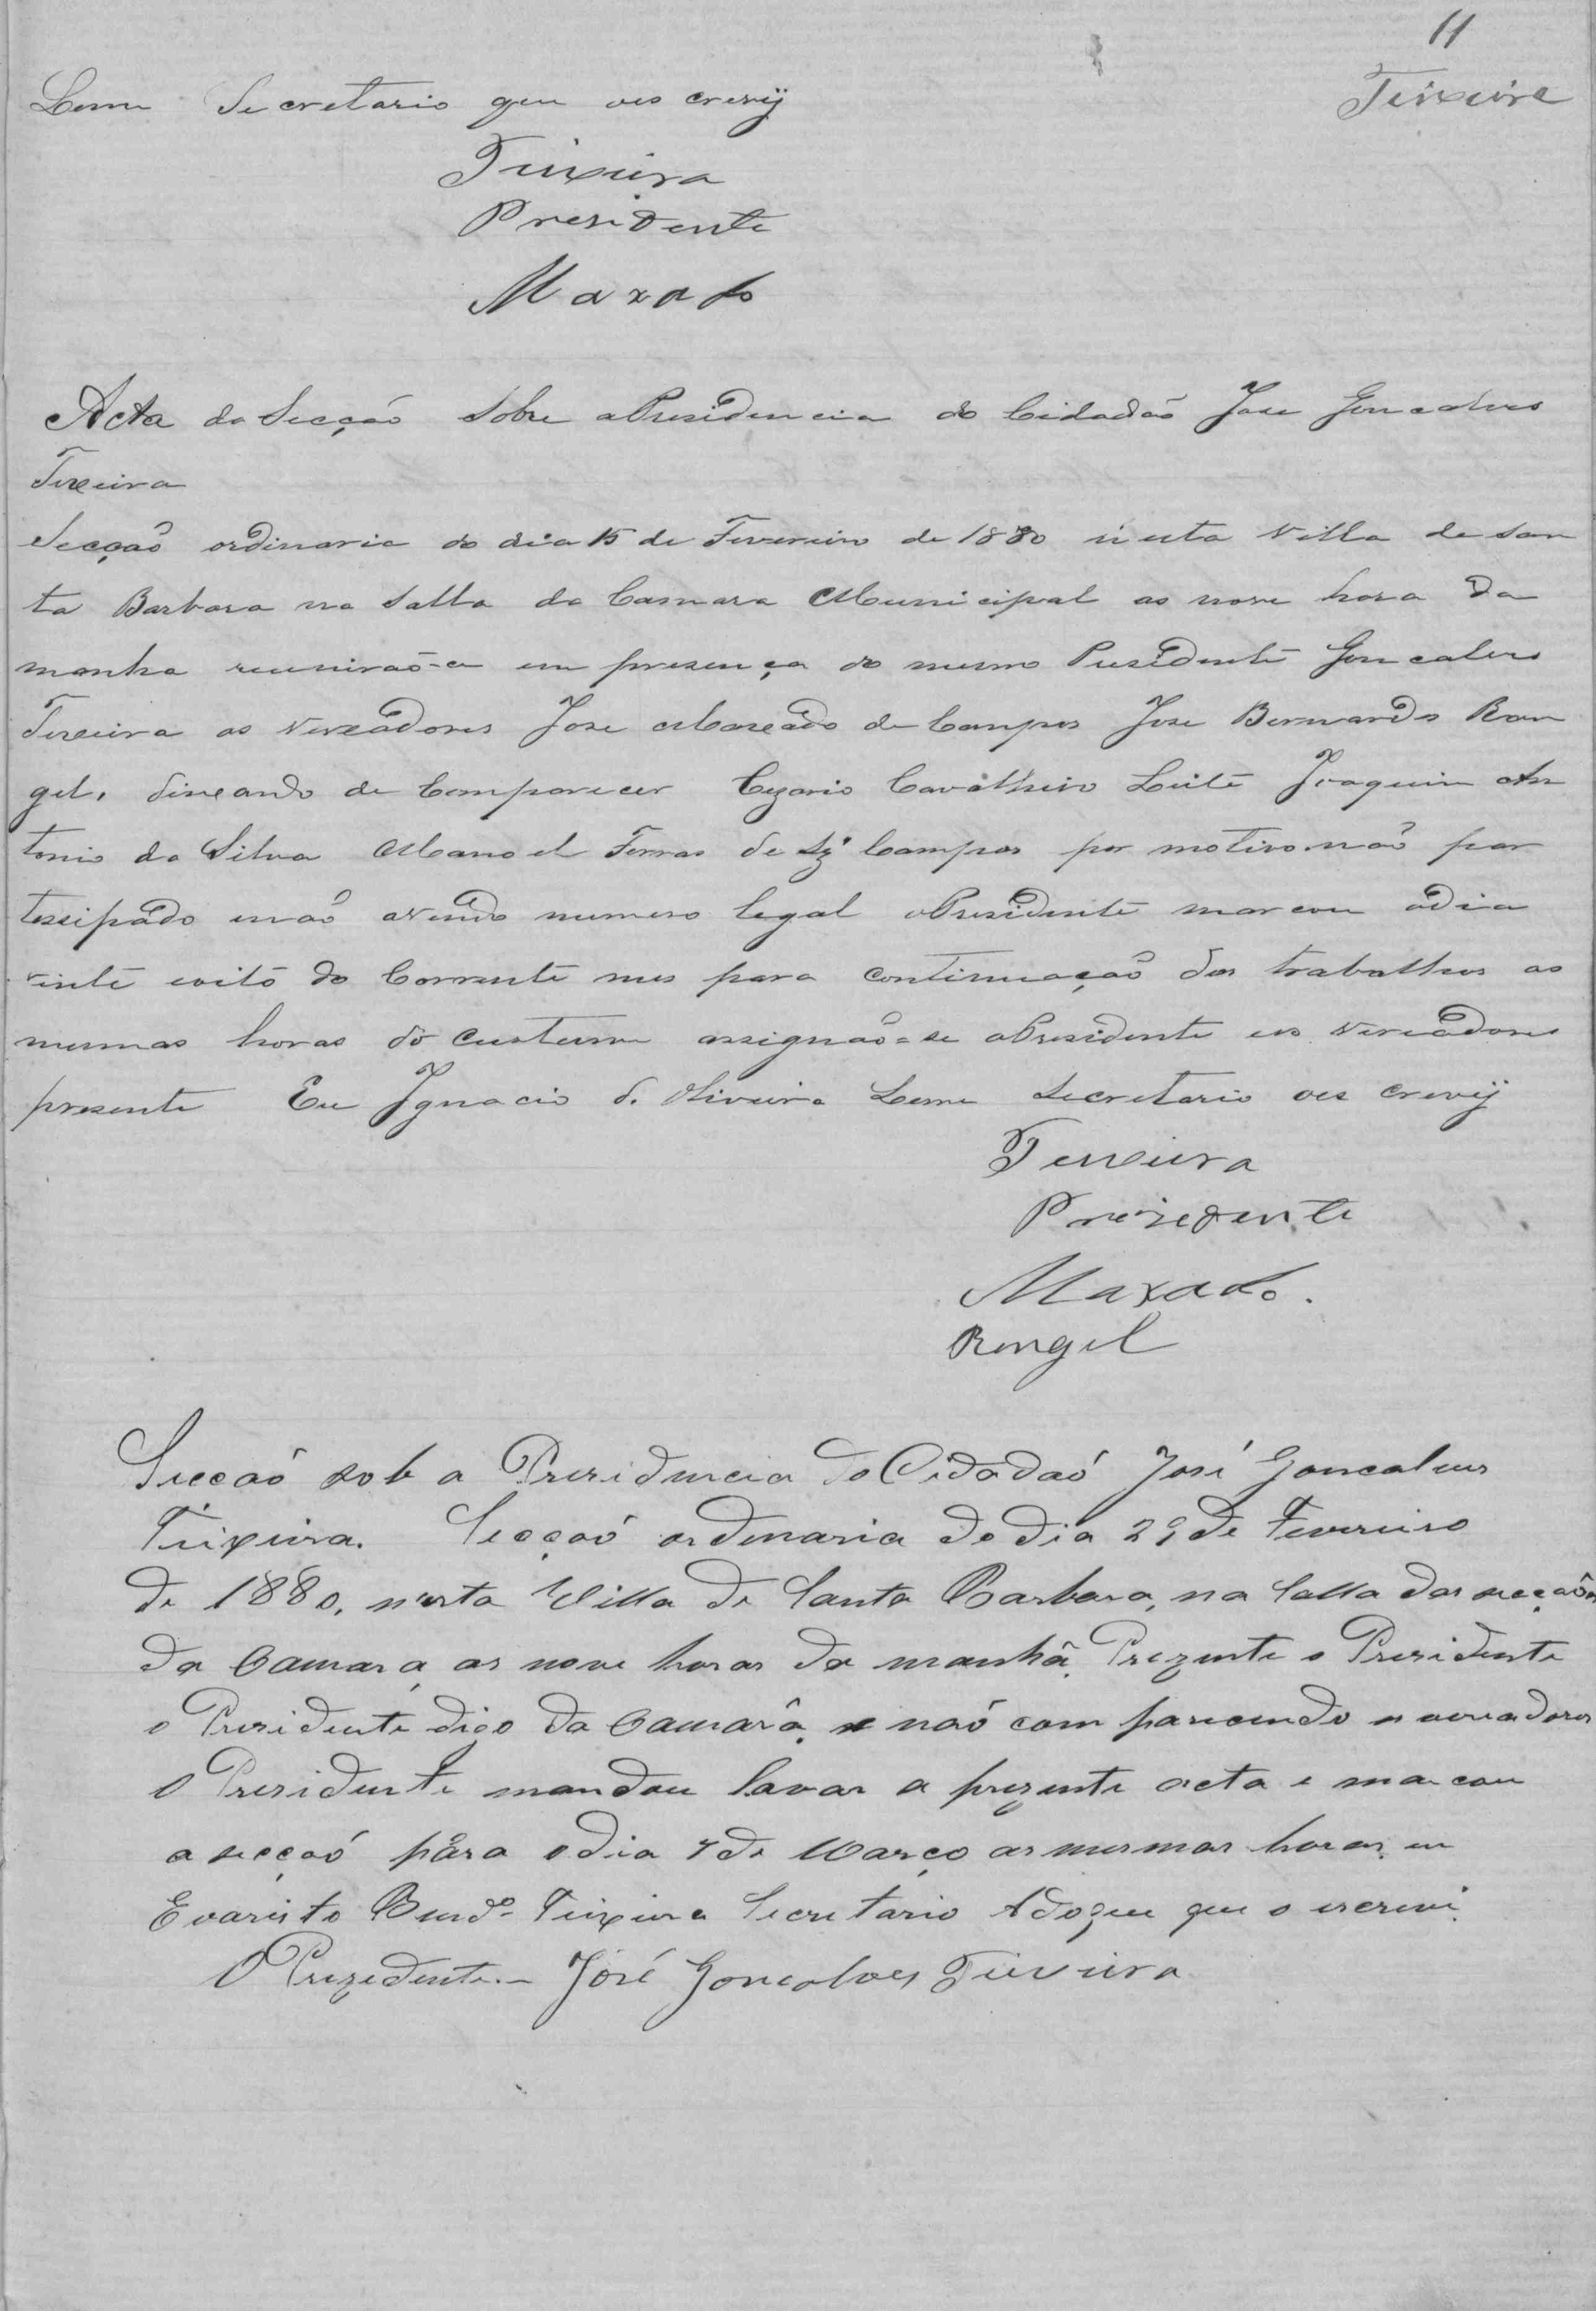 11
Teixeira
Leme Secretario que oes crevij
Teixeira
Presidente
Maxado
Acta da Secção Sobre aPresidencia do Cidadão Jose Goncalves
Texeira
Secção ordinaria do dia 15 de Fevereiro de 1880 n'esta Villa de San
ta Barbara na Salla da Camara Municipal as nove hora da
manha reunirão-ce em presença do mesmo Presidente Goncalves
Texeira os Vereadores Jose Maxado de Campos Jose Bernardo Ran
gel, dixando de Comparecer Cezario Cavalheiro Leite Joaquim An
tonio da Silva Manoel Ferras de Campos por motivo não par
tessipado enão avendo numero legal oPresidente marcou odia
vinte eoito do Corrente mes para continuação dos trabalhos as
mesmas horas do Custume assignão-se oPresidente eos Vereadores
presente Eu Ignacio d. Oliveira Leme Secretario oes crevij
Teixeira
Prezedente
Maxado.
Rangel
Secção sob a Presidencia do Cidadão José Goncalves
Teixeira. Secção ordenaria do dia 29 de Fevereiro
de 1880, n'esta Villa de Santa Barbara, na Salla das secçaões
da Camara as nove horas da manhã. Prezente o Presidente
o Presidente digo da Camara, e naó comparecendo os vereadores
O Presidente mandou lavar a prezente acta e marcou
a secçaó pára o dia 7 de Março as mesmas horas, eu
Evaristo Bued.º Teixeira Secretario Adoque que o escrevi.
O Prezedente.— José Goncalves Teixeira